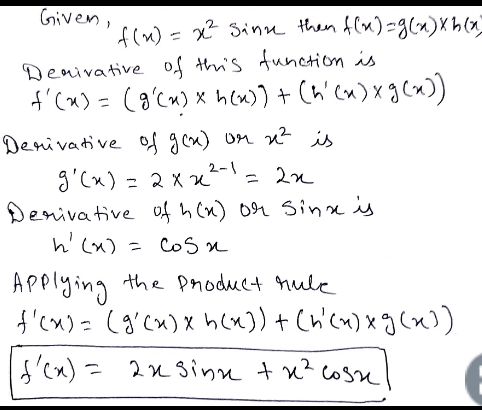 Given,
f(x) = x² sinx then f(x)=g(x)×h(x)
Derivative of this function is
f'(x) = (g'(x) × h(x)) + (h'(x) × g(x))
Derivative of g(x) or x² is
g'(x) = 2 × x²⁻¹ = 2x
Derivative of h(x) or sinx is
h'(x) = cosx
Applying the product rule
f'(x) = (g'(x) × h(x)) + (h'(x) × g(x))
f'(x) = 2x sinx + x² cosx